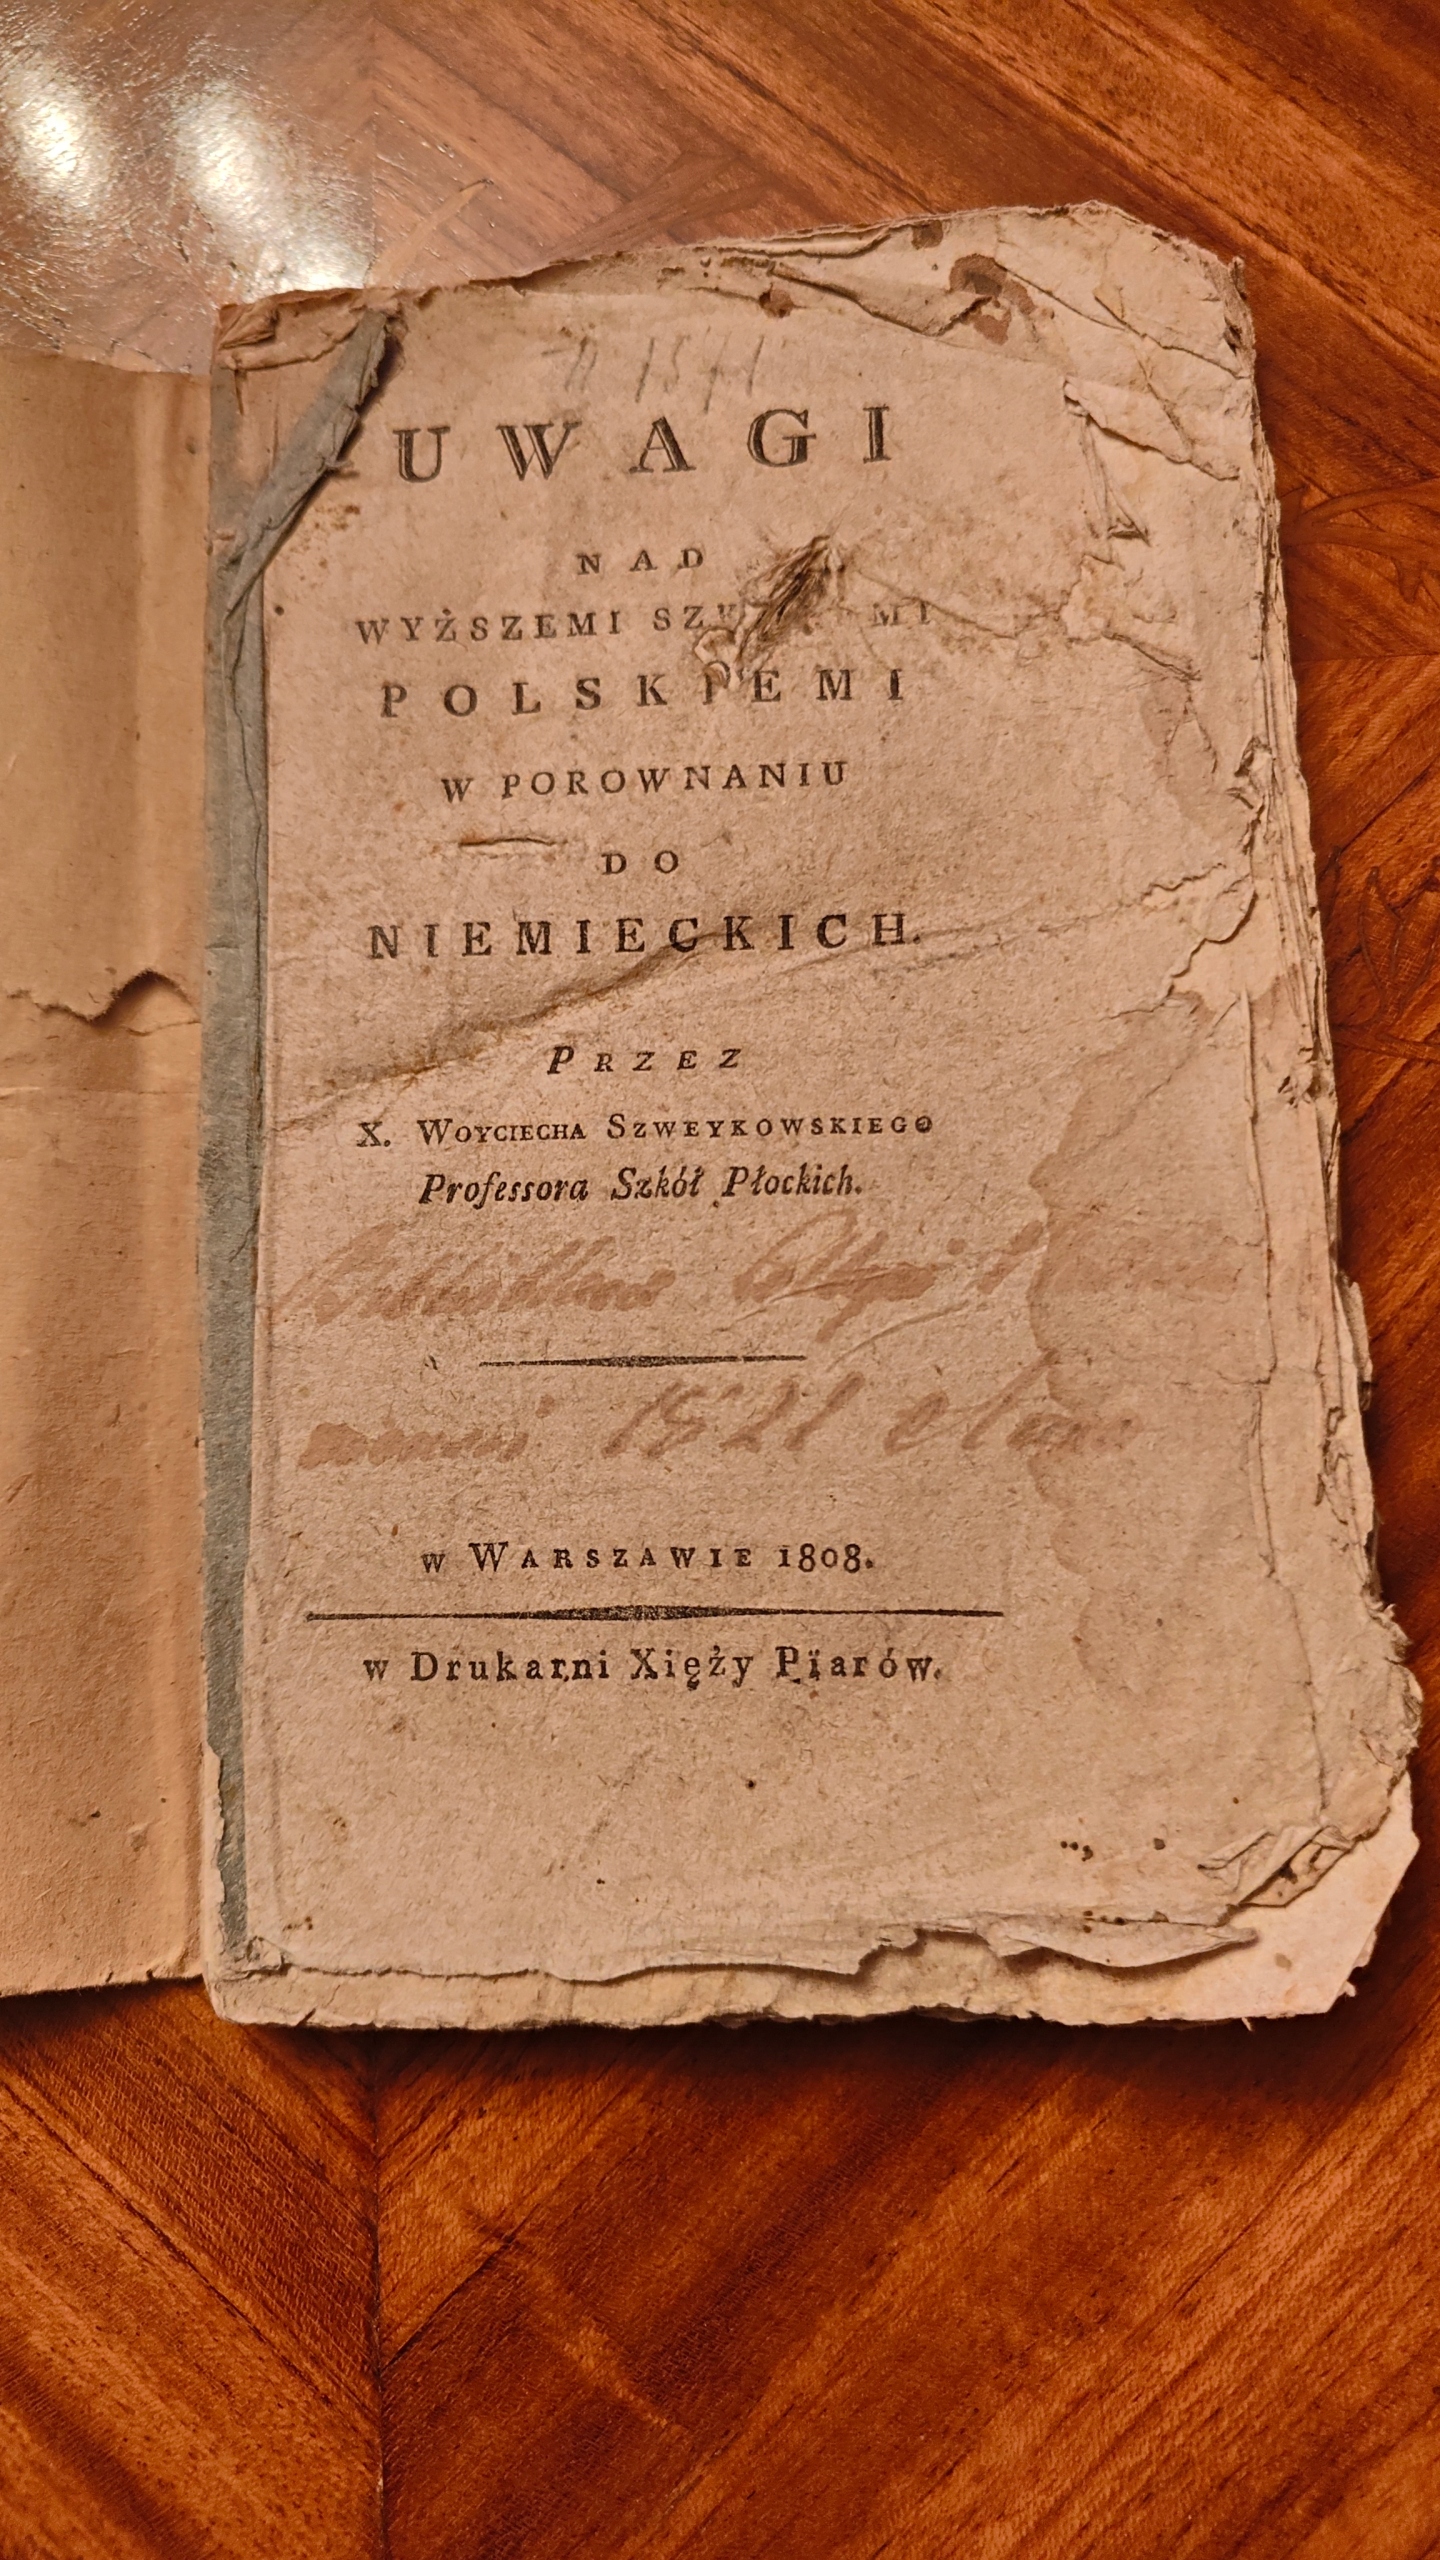 UWAGI
NAD
WYŻSZEMI
POLSKIEMI
W POROWNANIU
DO
NIEMIECKICH.
PRZEZ
X. WOYCIECHA SZWEYKOWSKIEGO
Professora Szkół Płockich.
1821
w WARSZAWIE 1808.
w Drukarni Xięży Piarów.